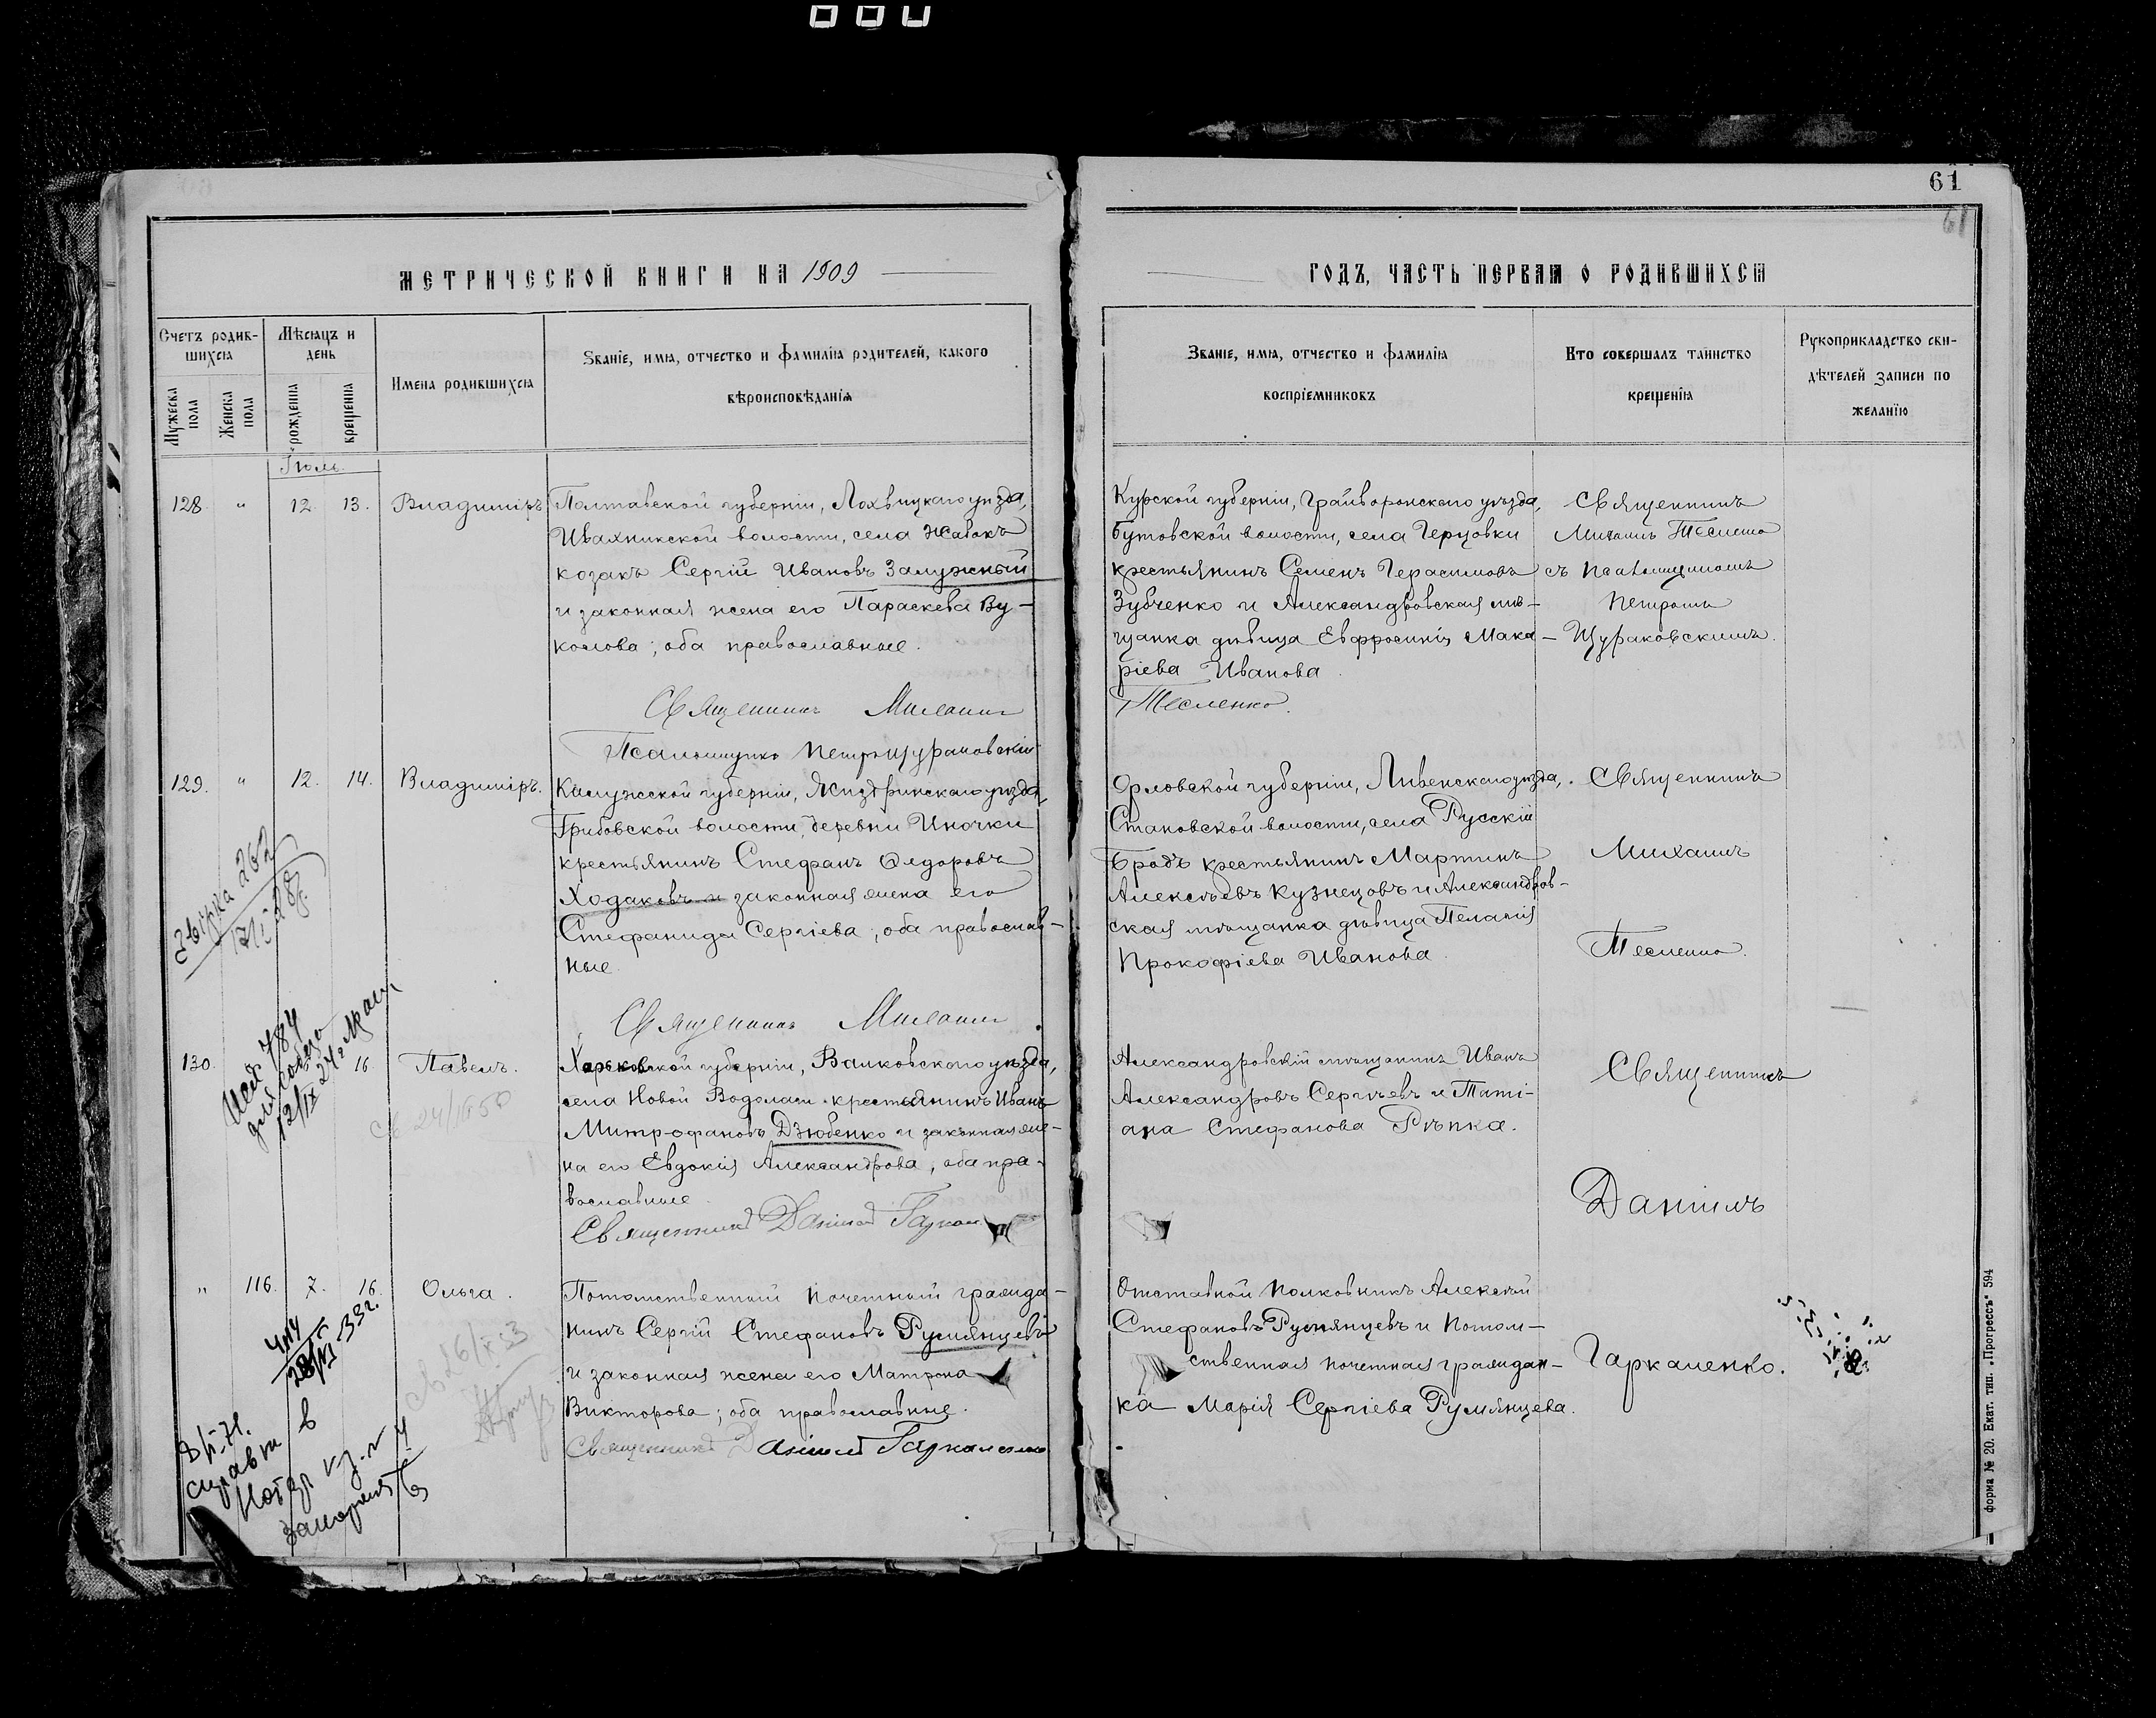 61
61
МЕТРИЧЕСКОЙ КНИГИ НА 1909
ГОДЪ, ЧАСТЬ ПЕРВАЯ О РОДИВШИХСЯ
Счетъ родив-
шихся
Мѣсяцъ и
день
Имена родившихся
Званіе, имя, отчество и фамилія родителей, какого
вѣроисповѣданія
Мужеска
пола
Женска
пола
рожденія
крещенія
Званіе, имя, отчество и фамилія
воспріемниковъ
Кто совершалъ таинство
крещенія
Рукоприкладство сви-
дѣтелей записи по
желанію
Іюль.
128 " 12. 13. Владиміръ
Полтавской губерніи, Лохвицкаго уѣзда,
Ивахникской волости, села Жабокъ
козакъ Сергій Ивановъ Залужный
и законная жена его Параскева Ву-
колова; оба православные.
Священникъ Михаилъ
Тесленко.
Псаломщикъ Петръ Щураковскій
Курской губерніи, Грайворонскаго уѣзда,
Бутовской волости, села Герцовки
крестьянинъ Семенъ Герасимовъ
Зубченко и Александровская мѣ-
щанка дѣвица Евфросинія Мака-
ріева Иванова.
Священникъ
Михаилъ Тесленко
съ псаломщикомъ
Петромъ
Щураковскимъ.
129. " 12. 14. Владиміръ.
Калужской губерніи, Жиздринскаго уѣзда,
Грибовской волости, деревни Иночки
крестьянинъ Стефанъ Ѳедоровъ
Ходаковъ и законная жена его
Стефанида Сергіева; оба православ-
ные.
Священникъ Михаилъ
Орловской губерніи, Ливенскаго уѣзда,
Становской волости, села Русскій
Бродъ крестьянинъ Мартинъ
Алексѣевъ Кузнецовъ и Александров-
ская мѣщанка дѣвица Пелагія
Прокофіева Иванова.
Священникъ
Михаилъ
Тесленко.
130. 16 Павелъ.
Харьковской губерніи, Валковскаго уѣзда,
села Новой Водолаги крестьянинъ Иванъ
Митрофановъ Дзюбенко и законная же-
на его Евдокія Александрова; оба пра-
вославные.
Священникъ Даніилъ
Александровскій мѣщанинъ Иванъ
Александровъ Сергѣевъ и Таті-
ана Стефанова Рѣпка.
Священникъ
Даніилъ
Гаркаленко.
" 116. 7. 16. Ольга.
Потомственный почетный гражда-
нинъ Сергій Стефановъ Румянцевъ
и законная жена его Матрона
Викторова; оба православные.
Священникъ Даніилъ Гаркаленко
Отставной полковникъ Алексѣй
Стефановъ Румянцевъ и потом-
ственная почетная граждан-
ка Марія Сергіева Румянцева.
784
12/IX 24г.
24/IX 50
форма № 20. Екат. тип. „Прогрессъ" 594